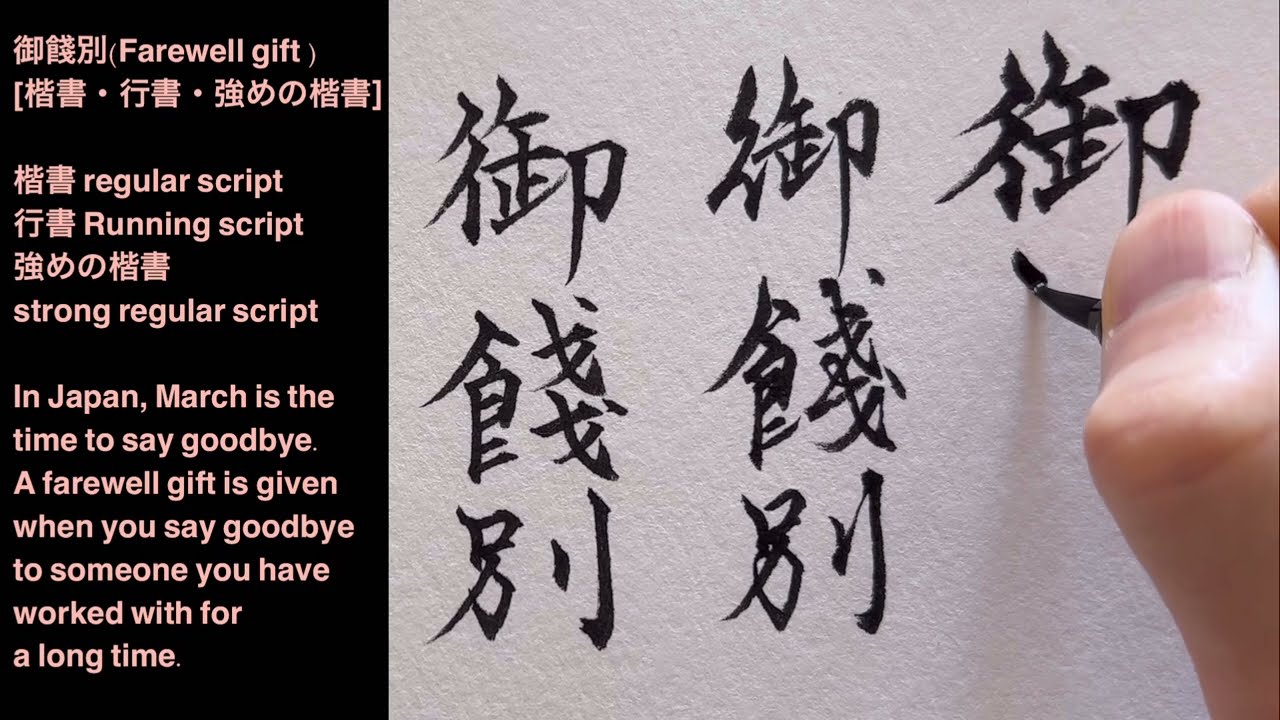 御餞別(Farewell gift )
[楷書・行書・強めの楷書]
楷書 regular script
行書 Running script
強めの楷書
strong regular script
In Japan, March is the
time to say goodbye.
A farewell gift is given
when you say goodbye
to someone you have
worked with for
a long time.
御餞別
御餞別
御